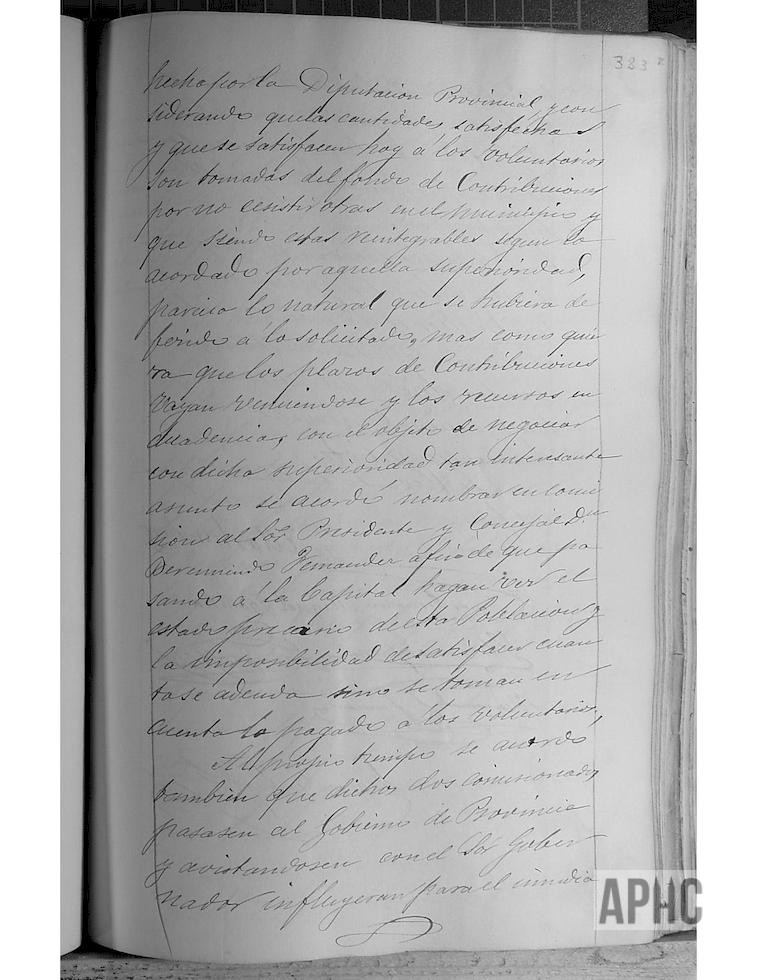 383
hecho por la Diputacion Provincial, y con
siderando que las cantidades satisfechas
y que se satisfacen hoy á los voluntarios
son tomadas del fondo de Contribuciones
por no ecsistir otras en el municipio y
que siendo estas reintegrables segun lo
acordado por aquella superioridad,
parecia lo natural que se hubiera de
ferido á lo solicitado, mas como quie
ra que los plazos de Contribuciones
vayan venciendose y los recursos en
decadencia, con el objeto de negociar
con dicha superioridad tan interesante
asunto se acordó nombrar en comi
sion al Sór Presidente y Concejal Dn
Fernandez a fin de que pa
sando á la Capital hagan ver el
estado precario de esta Poblacion y
la imposibilidad de satisfacer cuan
to se adeuda sino se toman en
cuenta lo pagado á los voluntarios,
Al propio tiempo se acordó
tambien que dichos dos comisionados
pasasen al Gobierno de Provincia
y avistandosen con el Sór Gober
nador influyeran para el inmedia
APHC